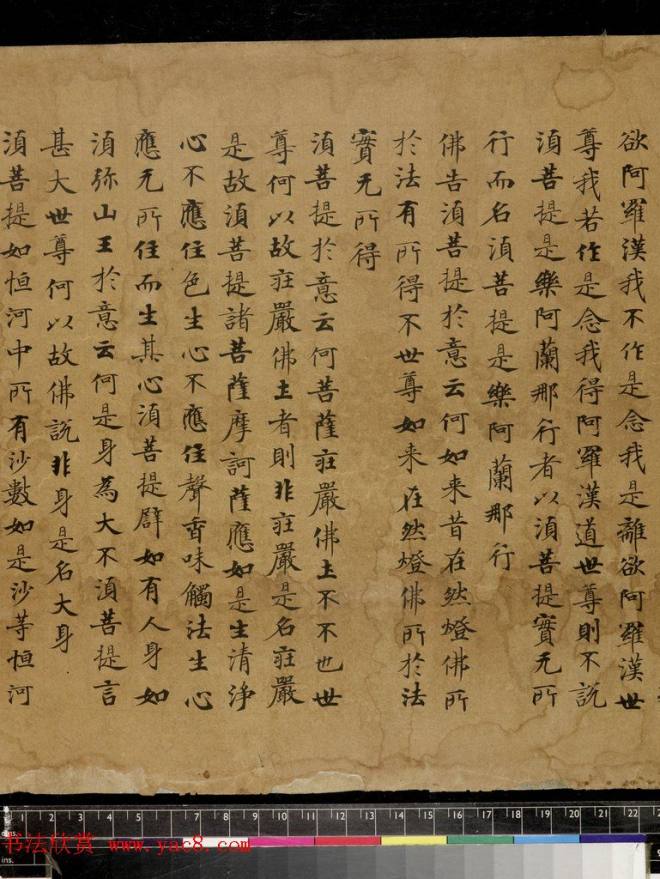 欲阿羅漢我不作是念我是離欲阿羅漢世
尊我若作是念我得阿羅漢道世尊則不説
須菩提是樂阿蘭那行者以須菩提實无所
行而名須菩提是樂阿蘭那行
佛告須菩提於意云何如来昔在然燈佛所
於法有所得不世尊如来在然燈佛所於法
實无所得
須菩提於意云何菩薩莊嚴佛土不不也世
尊何以故莊嚴佛土者則非莊嚴是名莊嚴
是故須菩提諸菩薩摩訶薩應如是生清淨
心不應住色生心不應住聲香味觸法生心
應无所住而生其心須菩提辟如有人身如
須弥山王於意云何是身為大不須菩提言
甚大世尊何以故佛説非身是名大身
須菩提如恒河中所有沙數如是沙等恒河
ins.
1 2 3 4 5 6 7 8 9 10 11 12 13 14 15 16 17 18 19 20 21 22
书法欣赏 www.yac8.com
ins.